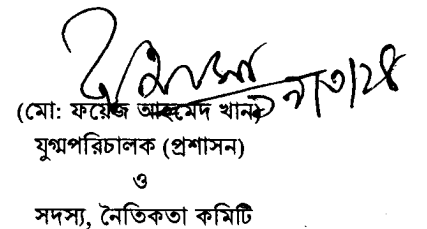 (মো: ফয়েজ আহমেদ খান)
যুগ্মপরিচালক (প্রশাসন)
ও
সদস্য, নৈতিকতা কমিটি